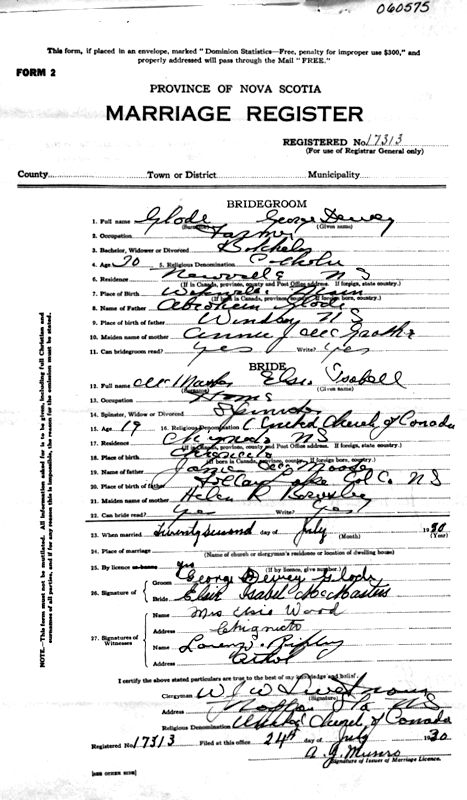 060575
This form, if placed in an envelope, marked "Dominion Statistics—Free, penalty for improper use $300," and
properly addressed will pass through the Mail "FREE."
FORM 2
PROVINCE OF NOVA SCOTIA
MARRIAGE REGISTER
REGISTERED No. 17313
(For use of Registrar General only)
County Town or District Municipality
BRIDEGROOM
1. Full name Glode George Dewey
(Surname) (Given name)
2. Occupation Farmer
3. Bachelor, Widower or Divorced Bachelor
4. Age 30 5. Religious Denomination Catholic
6. Residence N S
(If in Canada, province, county and Post Office address. If foreign, state country.)
7. Place of Birth
(If born in Canada, province, county. If foreign born, country.)
8. Name of Father Abraham Glode
9. Place of birth of father Windsor N S
10. Maiden name of mother Annie
11. Can bridegroom read? yes Write? yes
BRIDE
12. Full name Elsie Isabell
(Surname) (Given name)
13. Occupation Home
14. Spinster, Widow or Divorced Spinster
15. Age 19 16. Religious Denomination United Church of Canada
17. Residence N S
(If in Canada, province, county and Post Office address. If foreign, state country.)
18. Place of birth Chignecto
19. Name of father
20. Place of birth of father Lake Col Co. N S
21. Maiden name of mother Helen R
22. Can bride read? yes Write? yes
23. When married Twenty second day of July 1930
(Month) (Year)
24. Place of marriage
(Name of church or clergyman's residence or location of dwelling house)
25. By licence or banns yes
(If by licence, give number.)
26. Signature of Groom George Dewey Glode
Bride Elsie Isabel McMasters
27. Signatures of Witnesses Name Mrs Wood
Address Chignecto
Name
Address
I certify the above stated particulars are true to the best of my knowledge and belief.
Clergyman W J W
(Signature)
Address N S
Religious Denomination United Church of Canada
Registered No. 17313 Filed at this office 24th day of July 1930
A. J. Munro
Signature of Issuer of Marriage Licence.
[SEE OTHER SIDE]
NOTE.—This form must not be mutilated. All information asked for is to be given, including full Christian and
surnames of all parties, and if for any reason this is impossible, the reason for the omission must be stated.